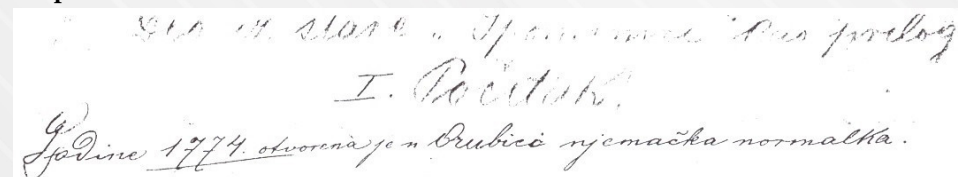 Dio iz stare „Spomenice kao prilog
I. Početak.
Godine 1774. otvorena je u Orubici njemačka normalka.